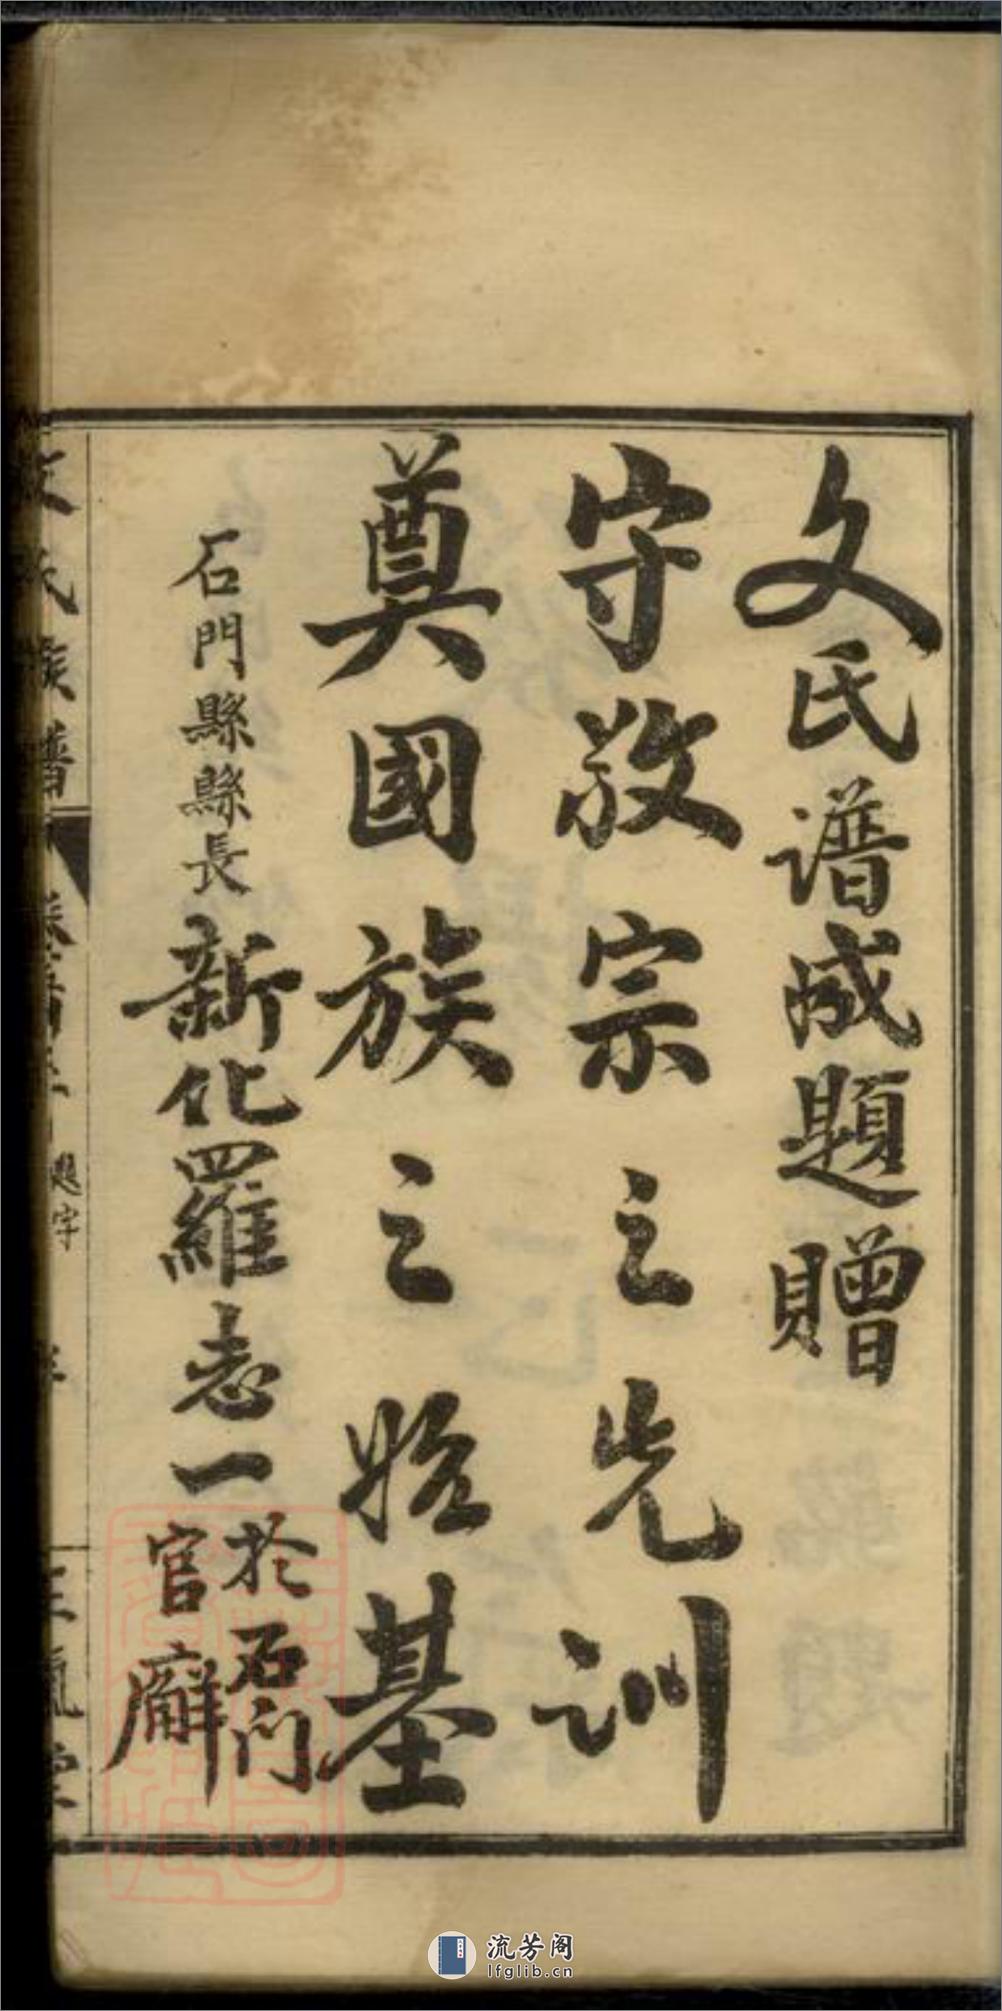 文氏譜成題贈
守敬宗之先訓
奠國族之始基
石門縣縣長新化羅志一於石門官廨
文氏族譜
卷首上
題字
正氣堂
流芳阁
lfglib.cn